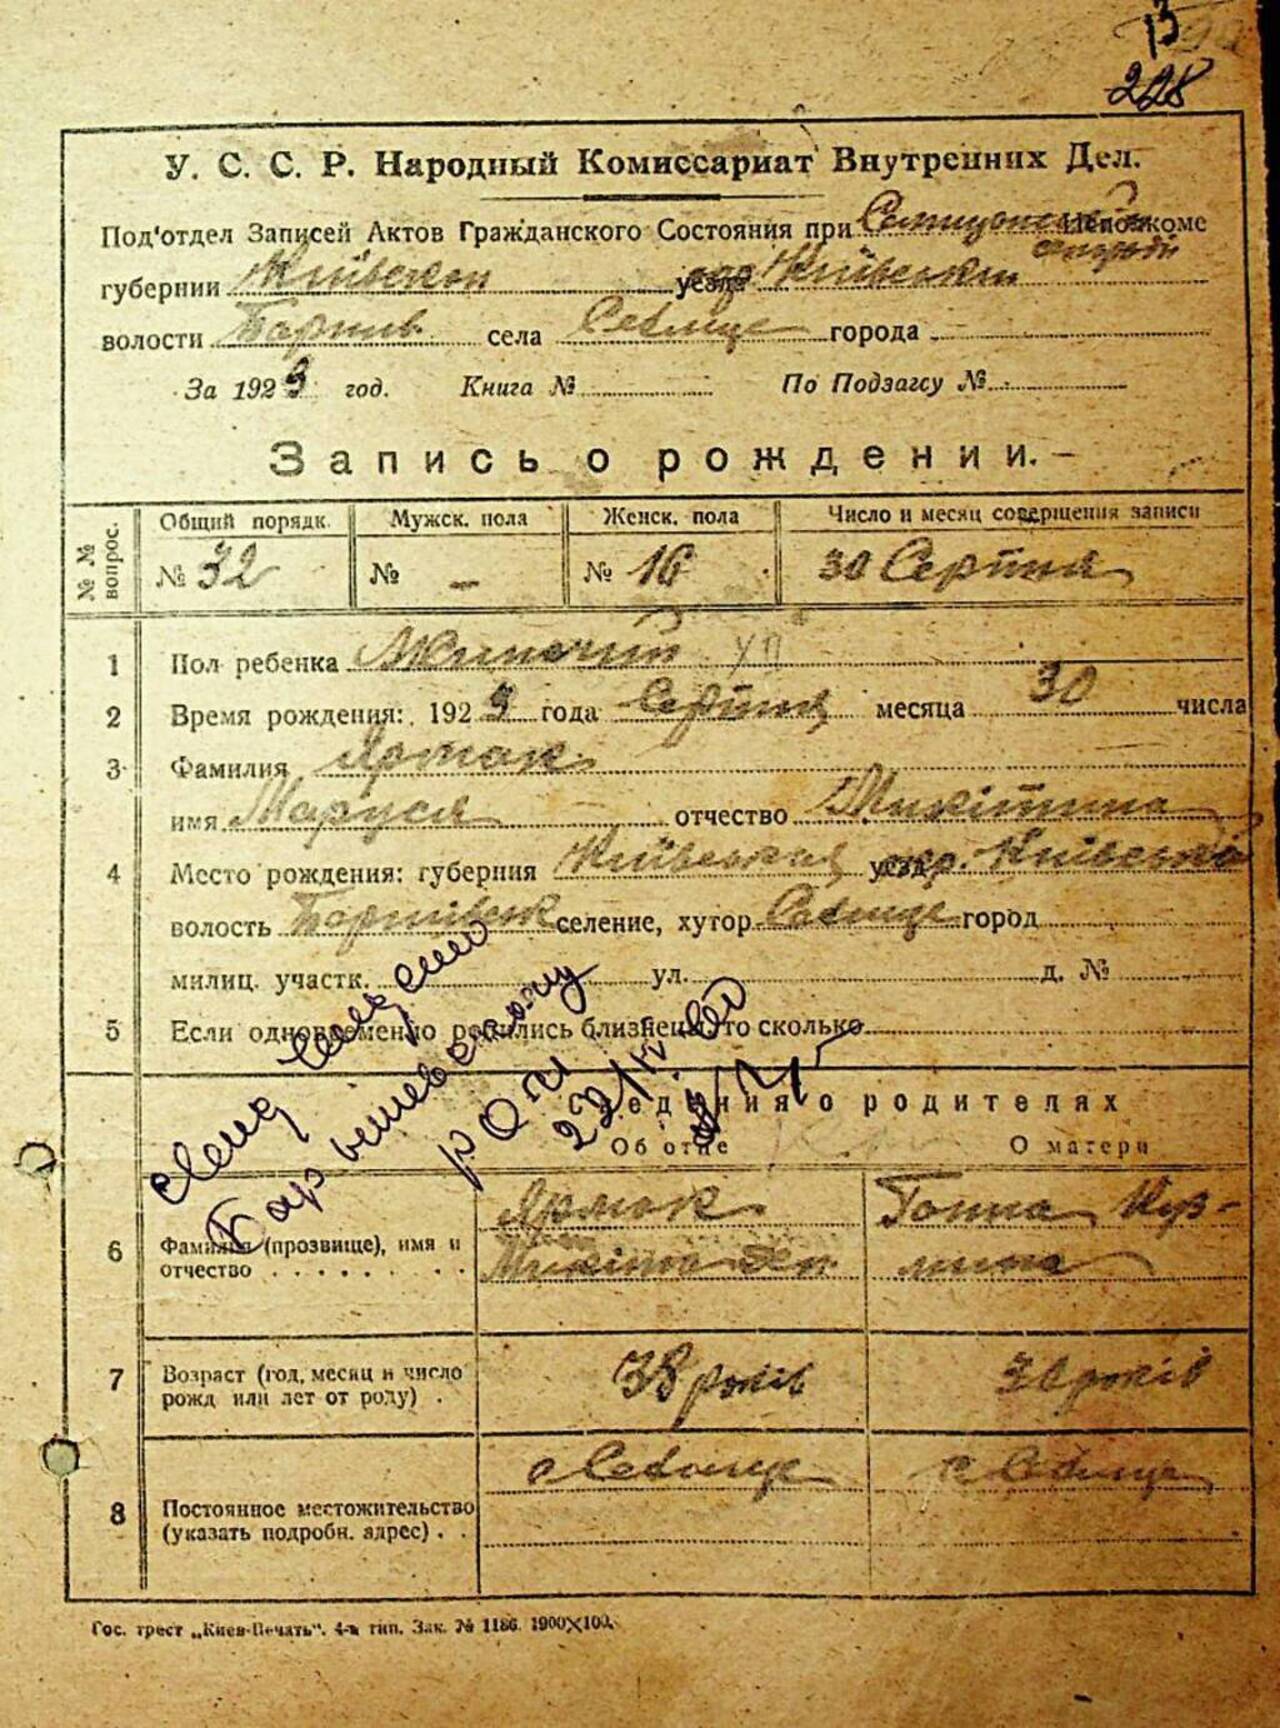 13
228
У. С. С. Р. Народный Комиссариат Внутренних Дел.
Под'отдел Записей Актов Гражданского Состояния при Исполкоме
губернии Київской уезда окр Київський
волости Баришів. села Селище города
За 1923 год. Книга № По Подзагсу №
Запись о рождении.
№ № вопрос. Общий порядк. Мужск. пола Женск. пола Число и месяц совершения записи
№ 32 № — № 16 30 Серпня
1 Пол ребенка Жиночий
2 Время рождения: 1923 года Серпня месяца 30 числа
3 Фамилия Ярмак
имя Маруся отчество Микітина
4 Место рождения: губерния Київська уезд окр. Київська
волость селение, хутор Селище город
милиц. участк. ул. д. №
5 Если одновременно родились близнецы, то сколько
Сведения о родителях
Об отце О матери
6 Фамилия (прозвище), имя и отчество Ярмак Ганна Куз-
Микіта мина
7 Возраст (год, месяц и число рожд или лет от роду) 38 років років
8 Постоянное местожительство (указать подробн. адрес) с Селище с Селище
Гос. трест „Киев-Печать“. 4-я тип. Зак. № 1186. 1900×100.